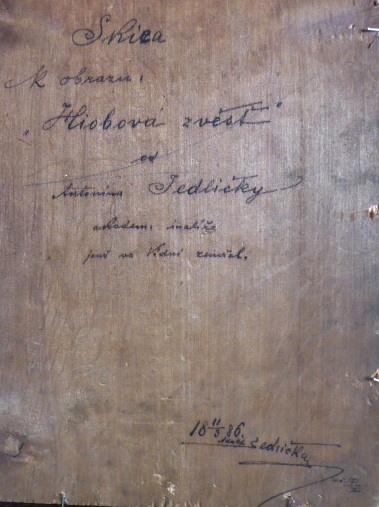 Skica
k obrazu:
„Hiobová zvěst"
od
Antonína Jedličky
akadem. malíře
jenž ve Vídni zemřel.
18 11/5 86.
Jedlička